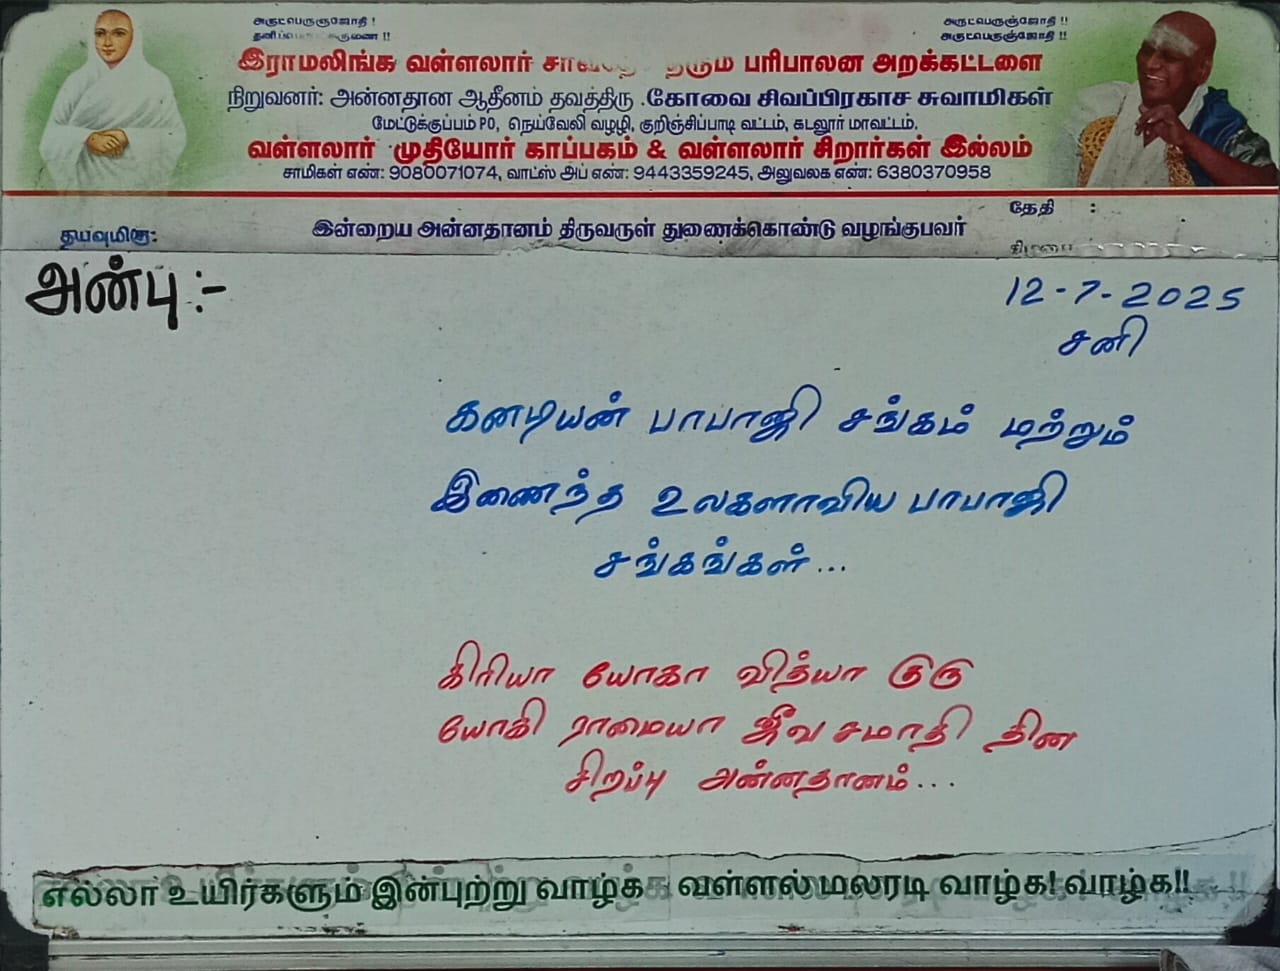 அருட்பெருஞ்ஜோதி !
அருட்பெருஞ்ஜோதி !!
அருட்பெருஞ்ஜோதி !!
இராமலிங்க வள்ளலார் தரும பரிபாலன அறக்கட்டளை
நிறுவனர்: அன்னதான ஆதீனம் தவத்திரு .கோவை சிவப்பிரகாச சுவாமிகள்
மேட்டுக்குப்பம் PO, நெய்வேலி வழழி, குறிஞ்சிப்பாடி வட்டம், கடலூர் மாவட்டம்.
வள்ளலார் முதியோர் காப்பகம் & வள்ளலார் சிறார்கள் இல்லம்
சாமிகள் எண்: 9080071074, வாட்ஸ் அப் எண்: 9443359245, அலுவலக எண்: 6380370958
தேதி :
இன்றைய அன்னதானம் திருவருள் துணைக்கொண்டு வழங்குபவர்
அன்பு :-
12-7-2025
சனி
கனடியன் பாபாஜி சங்கம் மற்றும்
இணைந்த உலகளாவிய பாபாஜி
சங்கங்கள்...
கிரியா யோகா வித்யா குரு
யோகி ராமையா ஜீவ சமாதி தின
சிறப்பு அன்னதானம்...
எல்லா உயிர்களும் இன்புற்று வாழ்க வள்ளல் மலரடி வாழ்க! வாழ்க!!